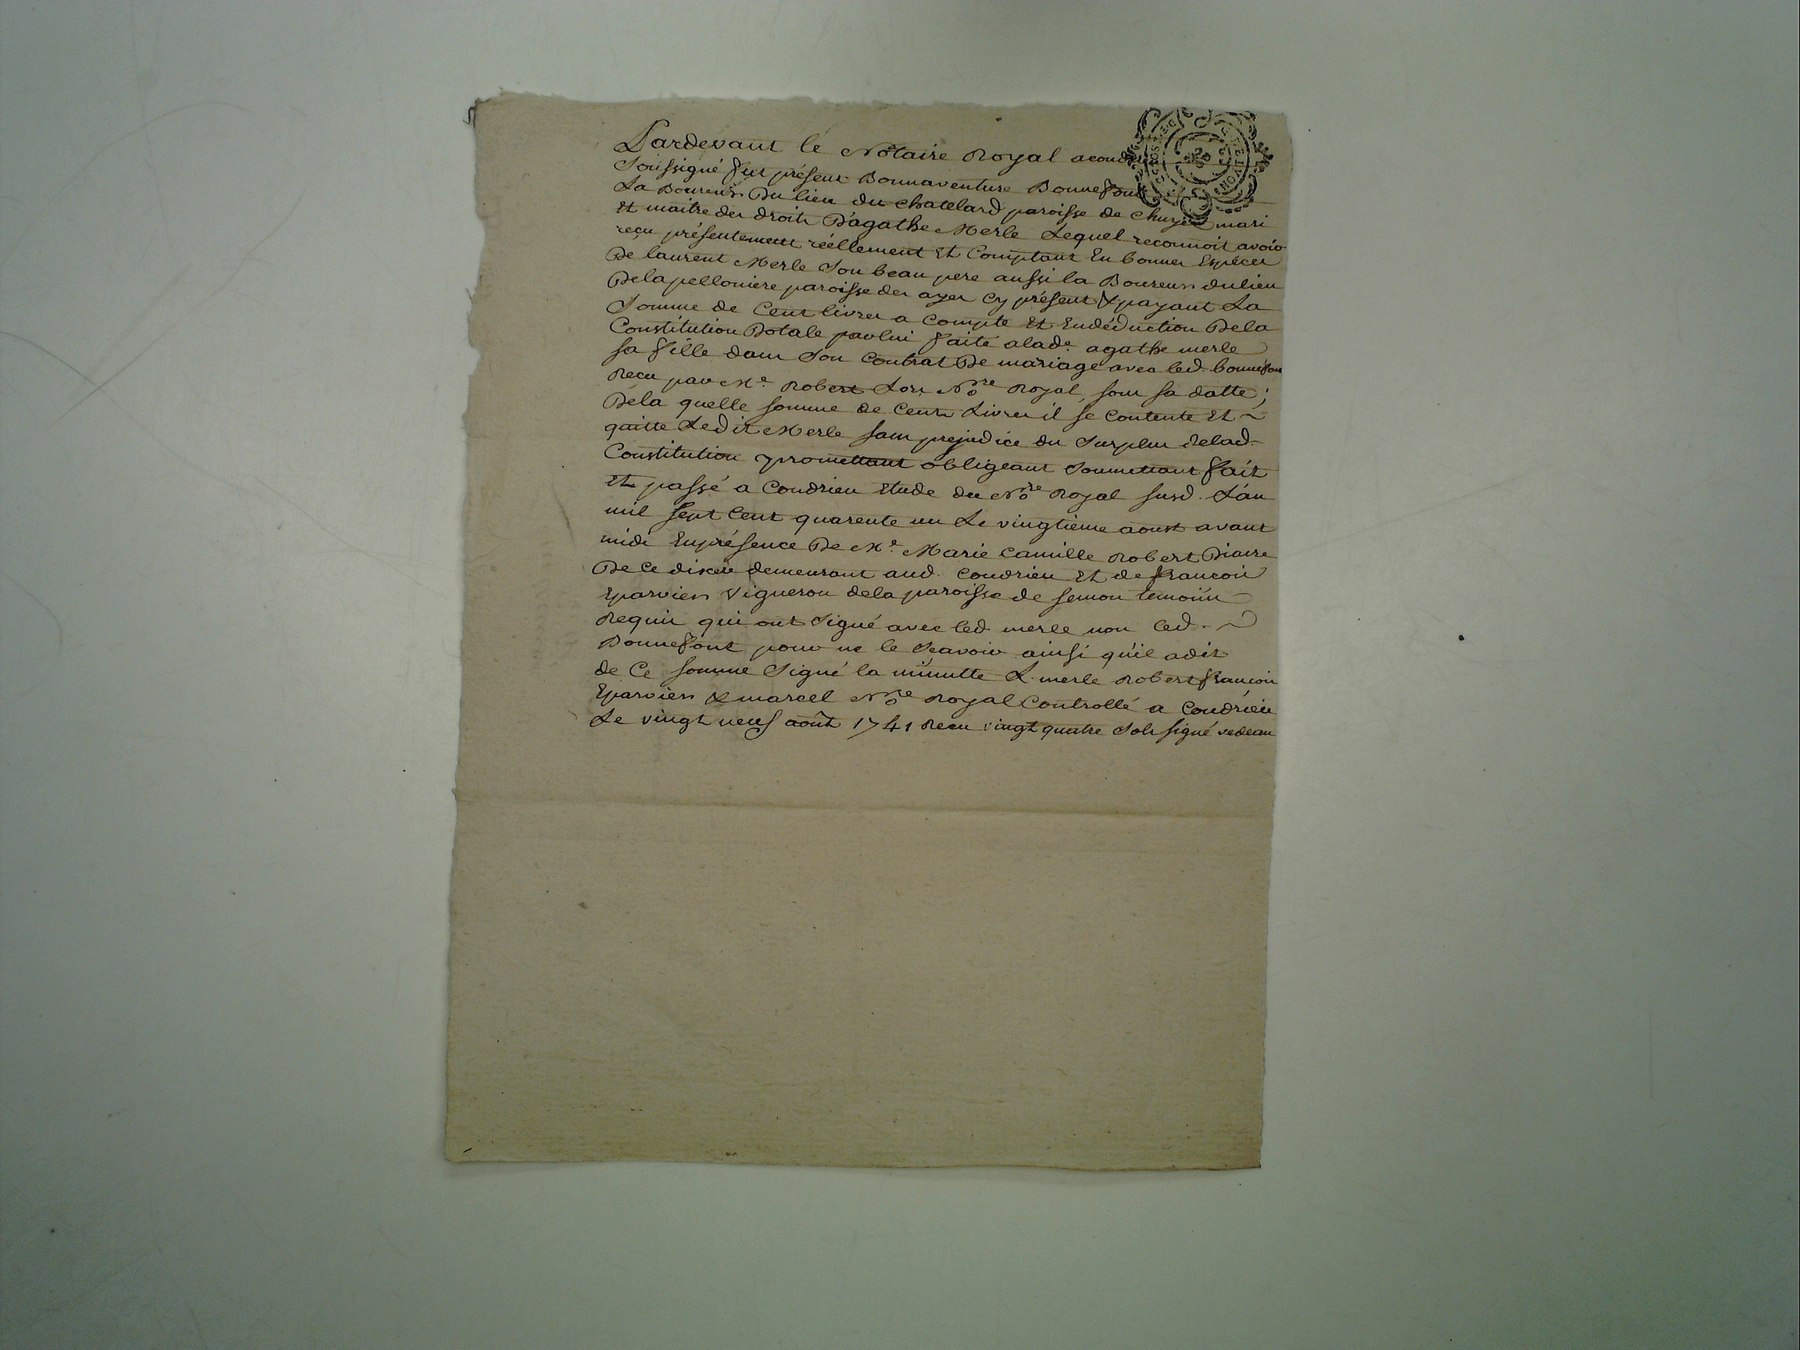 Pardevant le Notaire Royal a condrieu
soussigné fut présent Bonnaventure Bonnefont
La Boureur Du lieu du chatelard paroisse de chuyer mari
Et maitre des droits D'agathe Merle Lequel reconnoit avoir
reçu présentement réellement Et Comptant En bonnes Espéces
De laurent Merle Son beau pere aussi la Boureur du lieu
Dela pelloniere paroisse des ayes Cy présent & payant La
Somme de Cent livres a Compte Et En déduction Dela
Constitution Dotale par lui faite a lade. agathe merle
sa fille dans Son Contrat De mariage avec led. bonnefon
Recu par Me. Robert Lors Nore Royal, sous sa datte;
Dela quelle somme de Cent Livres il se Contente Et
quitte Ledit Merle sans prejudice du Surplus delad.
Constitution promettant obligeant Soumettant fait
Et passé a Condrieu Etude du Nore Royal susd. L'an
mil sept Cent quarente un Le vingtieme aoust avant
midi En présence De Me. Marie Camille Robert Diacre
De Ce diocese demeurant aud. Condrieu Et de françois
Eparvier Vigneron dela paroisse de semon temoins
Requis qui ont Signé avec led. merle non led.
Bonnefont pour ne le Scavoir ainsi qu'il a dit
de Ce sommé Signé la minutte L. merle Robert françois
Eparvier & marcel Nore Royal Controllé a Condrieu
Le vingt neuf août 1741 Recu vingt quatre Sols signé vedeau